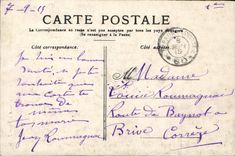 7-9-15
CARTE POSTALE
La Correspondance au recto n'est pas acceptée par tous les pays étrangers
(Se renseigner à la Poste)
Côté correspondance.
Côté adresse.
Je suis en bonne
santé, je
souhaite que
carte te
trouve de
même
ton mari
Jean Roumagnac
Madame
Louise Roumagnac
Route de
Brive
Corrèze